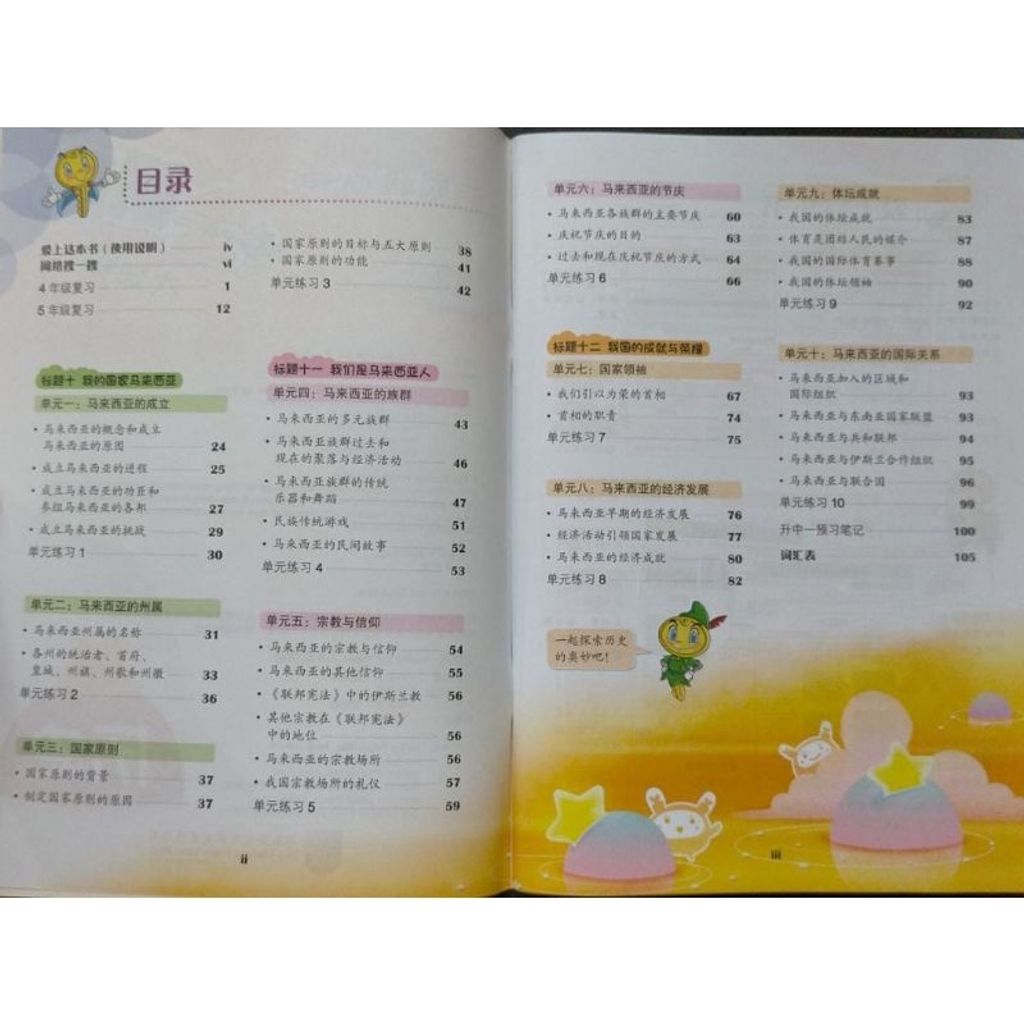 目录
爱上这本书（使用说明） iv
网络搜一搜 vi
4年级复习 1
5年级复习 12
标题十 我的国家马来西亚
单元一：马来西亚的成立
• 马来西亚的概念和成立
马来西亚的原因 24
• 成立马来西亚的进程 25
• 成立马来西亚的功臣和
参组马来西亚的各邦 27
• 成立马来西亚的挑战 29
单元练习 1 30
单元二：马来西亚的州属
• 马来西亚州属的名称 31
• 各州的统治者、首府、
皇城、州旗、州歌和州徽 33
单元练习 2 36
单元三：国家原则
• 国家原则的背景 37
• 制定国家原则的原因 37
• 国家原则的目标与五大原则 38
• 国家原则的功能 41
单元练习 3 42
标题十一 我们是马来西亚人
单元四：马来西亚的族群
• 马来西亚的多元族群 43
• 马来西亚族群过去和
现在的聚落与经济活动 46
• 马来西亚族群的传统
乐器和舞蹈 47
• 民族传统游戏 51
• 马来西亚的民间故事 52
单元练习 4 53
单元五：宗教与信仰
• 马来西亚的宗教与信仰 54
• 马来西亚的其他信仰 55
• 《联邦宪法》中的伊斯兰教 56
• 其他宗教在《联邦宪法》
中的地位 56
• 马来西亚的宗教场所 56
• 我国宗教场所的礼仪 57
单元练习 5 59
ii
单元六：马来西亚的节庆
• 马来西亚各族群的主要节庆 60
• 庆祝节庆的目的 63
• 过去和现在庆祝节庆的方式 64
单元练习 6 66
标题十二 我国的成就与荣耀
单元七：国家领袖
• 我们引以为荣的首相 67
• 首相的职责 74
单元练习 7 75
单元八：马来西亚的经济发展
• 马来西亚早期的经济发展 76
• 经济活动引领国家发展 77
• 马来西亚的经济成就 80
单元练习 8 82
一起探索历史
的奥妙吧！
单元九：体坛成就
• 我国的体坛成就 83
• 体育是团结人民的媒介 87
• 我国的国际体育赛事 88
• 我国的体坛领袖 90
单元练习 9 92
单元十：马来西亚的国际关系
• 马来西亚加入的区域和
国际组织 93
• 马来西亚与东南亚国家联盟 93
• 马来西亚与共和联邦 94
• 马来西亚与伊斯兰合作组织 95
• 马来西亚与联合国 96
单元练习 10 99
升中一预习笔记 100
词汇表 105
iii